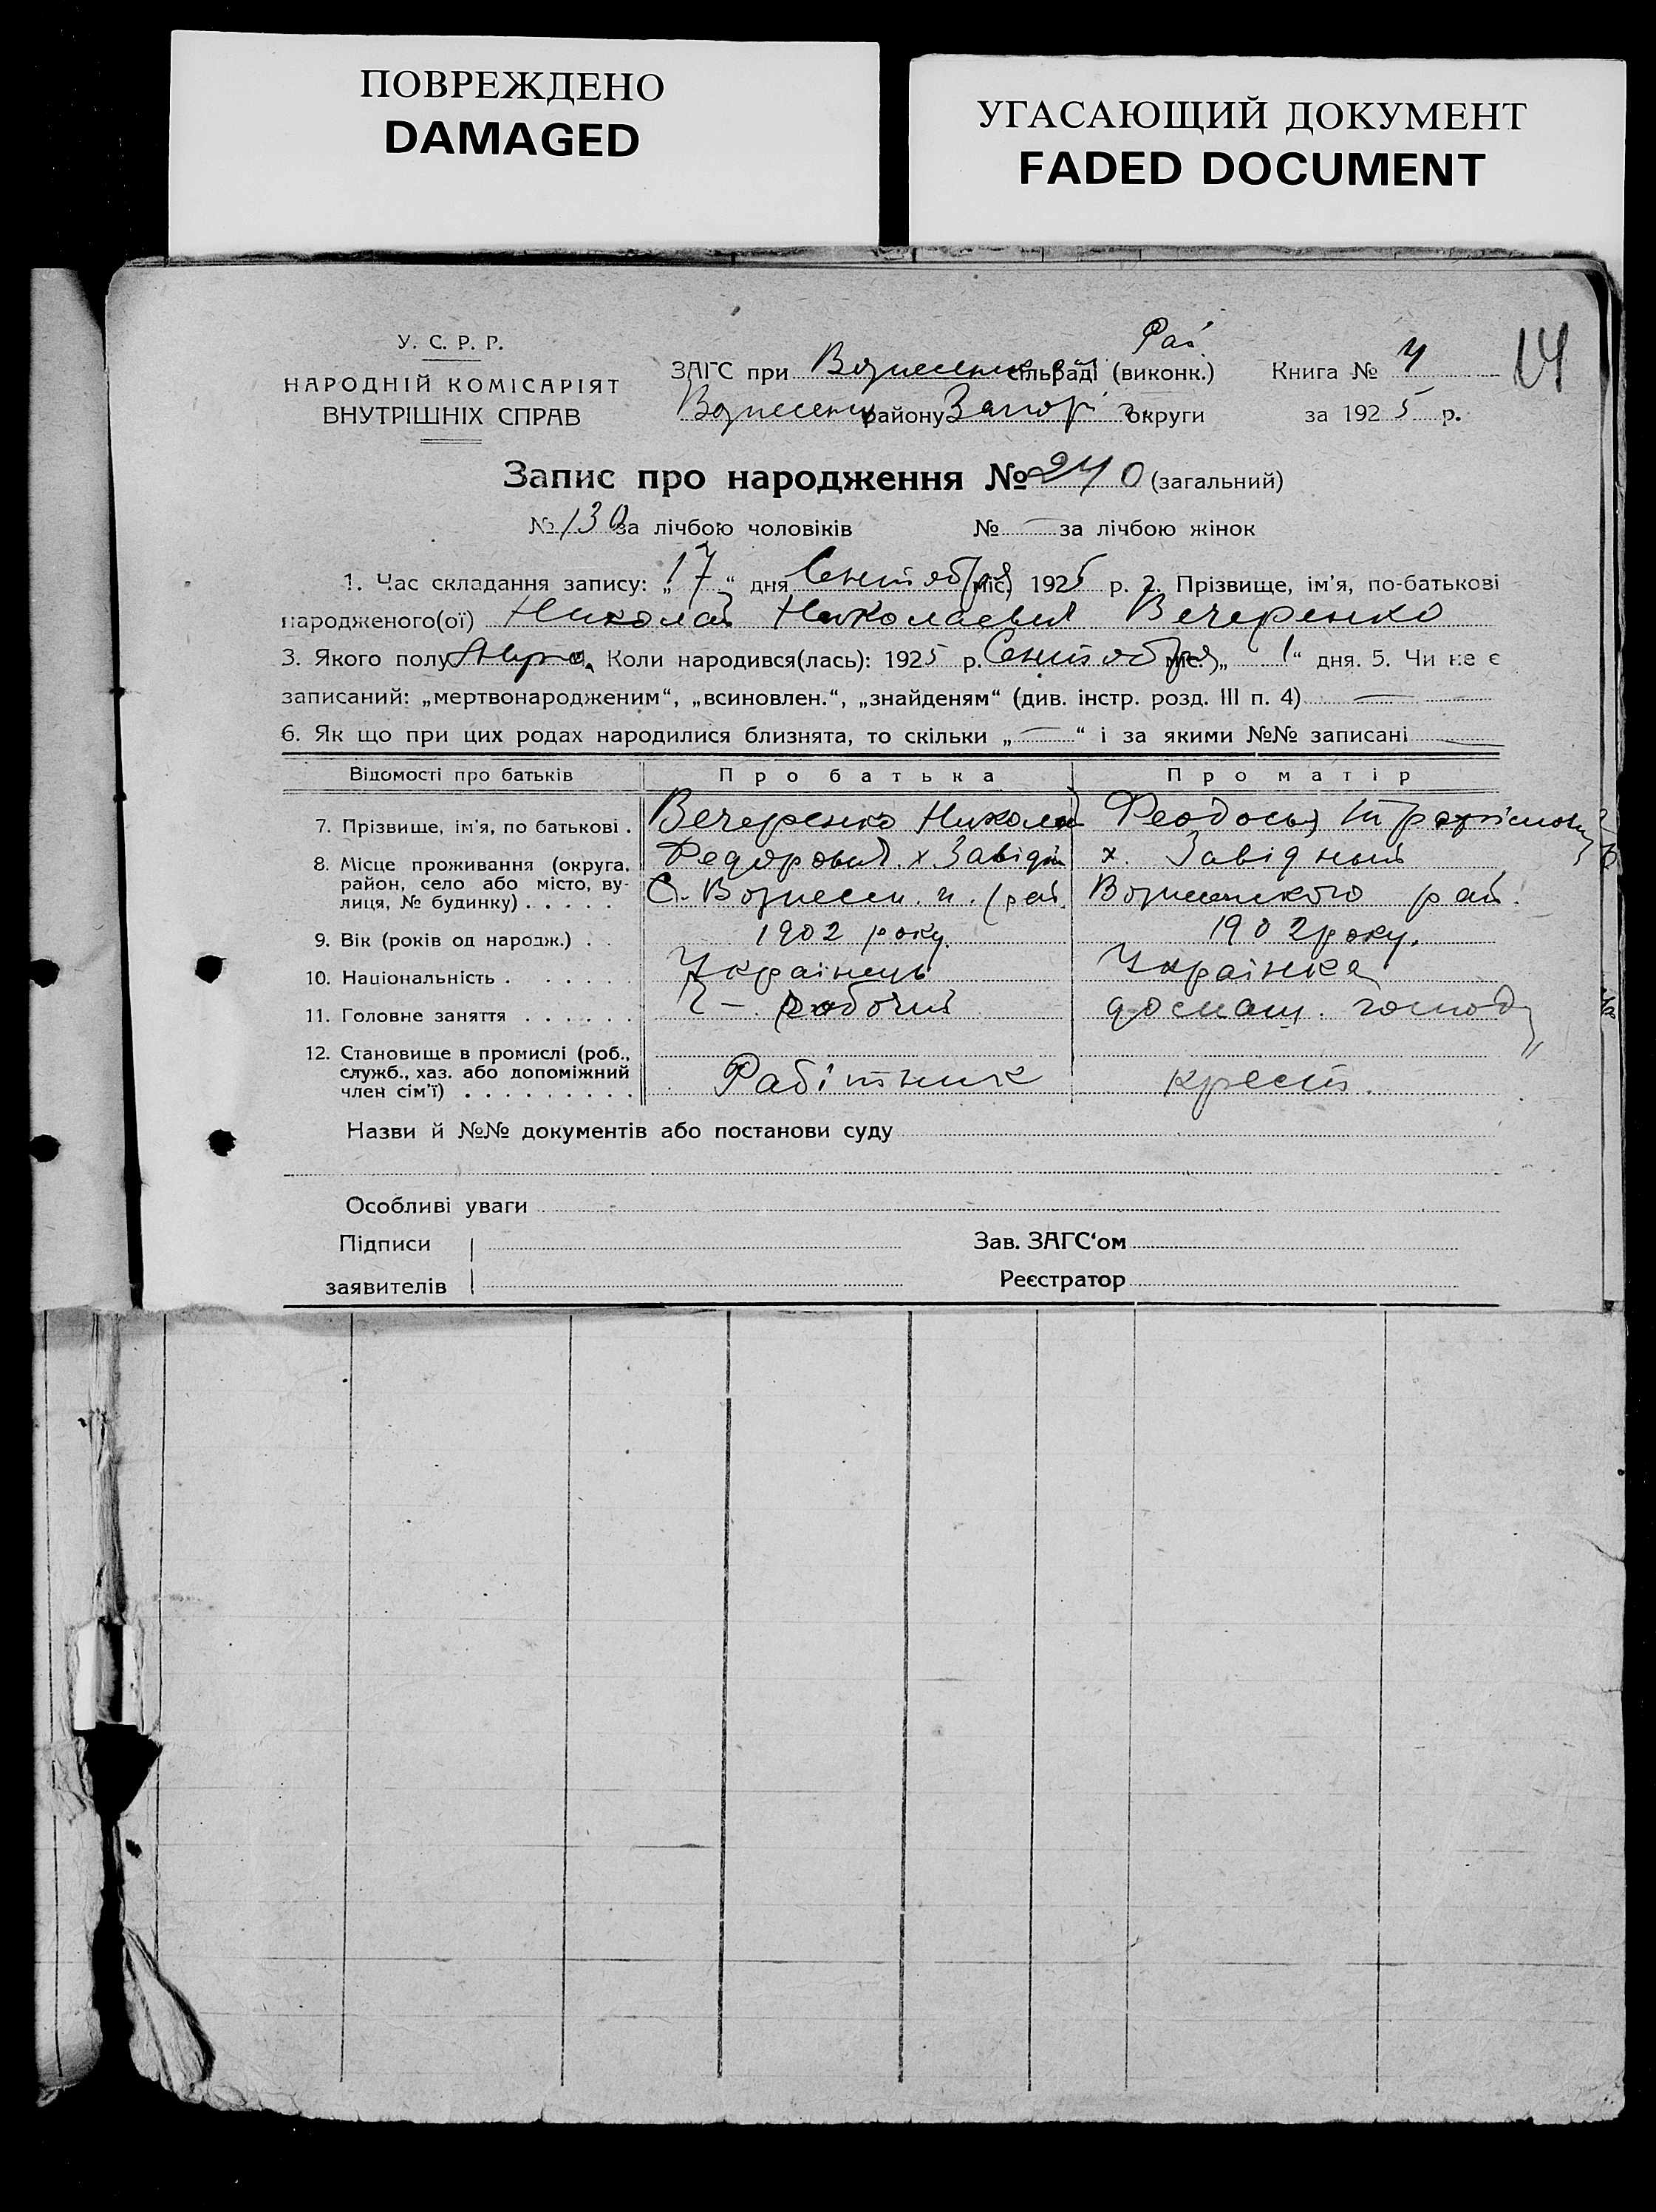 ПОВРЕЖДЕНО
DAMAGED
УГАСАЮЩИЙ ДОКУМЕНТ
FADED DOCUMENT
У. С. Р. Р.
НАРОДНІЙ КОМІСАРІЯТ
ВНУТРІШНІХ СПРАВ
Рай.
ЗАГС при сільраді (виконк.)
району Запорі округи
Книга № 4
за 1925 р.
14
Запис про народження № 240 (загальний)
№ 130 за лічбою чоловіків № — за лічбою жінок
1. Час складання запису: „17“ дня Сентября міс. 1925 р. 2. Прізвище, ім'я, по-батькові
народженого(ої) Николай Николаевич Вечеренко
3. Якого полу Коли народився(лась): 1925 р. Сентября міс. „1“ дня. 5. Чи не є
записаний: „мертвонародженим“, „всиновлен.“, „знайденям“ (див. інстр. розд. III п. 4) —
6. Як що при цих родах народилися близнята, то скільки „—“ і за якими №№ записані
Відомості про батьків Про батька Про матір
7. Прізвище, ім'я, по батькові . Вечеренко Николай Феодосья
8. Місце проживання (округа, район, село або місто, вулиця, № будинку) . . . . . Федорович х х.
С. Вознесен. рай. Вознесенского рай.
9. Вік (років од народж.) . . 1902 року 1902 року.
10. Національність . . . . . . Українець Українка
11. Головне заняття . . . . . . рабочий домаш. господ
12. Становище в промислі (роб., служб., хаз. або допоміжний член сім'ї) . . . . . . . . . Рабітник крест.
Назви й №№ документів або постанови суду
Особливі уваги
Підписи
заявителів
Зав. ЗАГС‘ом
Реєстратор